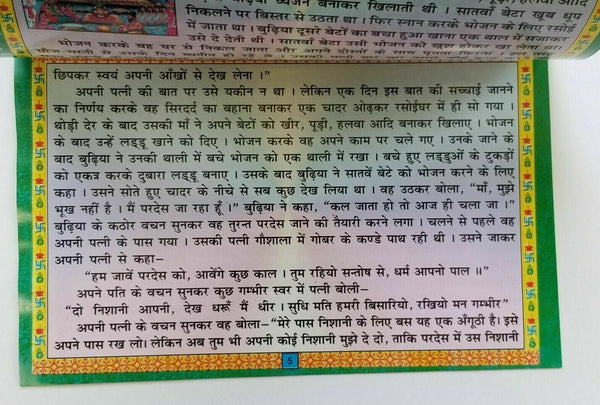 व्यंजन बनाकर खिलाती थी । सातवाँ बेटा खूब धूप
निकलने पर बिस्तर से उठता था । फिर स्नान करके भोजन के लिए रसोई
में जाता था । बुढ़िया दूसरे बेटों का बचा हुआ खाना एक थाल में सजाकर
उसे दे देती थी । सातवाँ बेटा उसी भोजन को खुश होकर खा लेता था।
भोजन करके वह घर से निकल जाता और अपने दोस्तों के साथ
छिपकर स्वयं अपनी आँखों से देख लेना ।”
अपनी पत्नी की बात पर उसे यकीन न था । लेकिन एक दिन इस बात की सच्चाई जानने
का निर्णय करके वह सिरदर्द का बहाना बनाकर एक चादर ओढ़कर रसोईघर में ही सो गया ।
थोड़ी देर के बाद उसकी माँ ने अपने बेटों को खीर, पूड़ी, हलवा आदि बनाकर खिलाए । भोजन
के बाद उन्हें लड्डू खाने को दिए । भोजन करके वह अपने काम पर चले गए । उनके जाने के
बाद बुढ़िया ने उनकी थाली में बचे भोजन को एक थाली में रखा । बचे हुए लड्डुओं के टुकड़ों
को एकत्र करके दुबारा लड्डू बनाए । उसके बाद बुढ़िया ने सातवें बेटे को भोजन करने के लिए
कहा । उसने सोते हुए चादर के नीचे से सब कुछ देख लिया था । वह उठकर बोला, “माँ, मुझे
भूख नहीं है । मैं परदेस जा रहा हूँ ।” बुढ़िया ने कहा, “कल जाता हो तो आज ही चला जा ।”
बुढ़िया के कठोर वचन सुनकर वह तुरन्त परदेस जाने की तैयारी करने लगा । चलने से पहले वह
अपनी पत्नी के पास गया । उसकी पत्नी गौशाला में गोबर के कण्डे पाथ रही थी । उसने जाकर
अपनी पत्नी से कहा–
“हम जावें परदेस को, आवेंगे कुछ काल । तुम रहियो सन्तोष से, धर्म आपनो पाल ॥”
अपने पति के वचन सुनकर कुछ गम्भीर स्वर में पत्नी बोली–
“दो निशानी आपनी, देख धरूँ मैं धीर । सुधि मति हमरी बिसारियो, रखियो मन गम्भीर”
अपनी पत्नी के वचन सुनकर वह बोला–“मेरे पास निशानी के लिए बस यह एक अँगूठी है। इसे
अपने पास रख लो। लेकिन अब तुम भी अपनी कोई निशानी मुझे दे दो, ताकि परदेस में उस निशानी
5